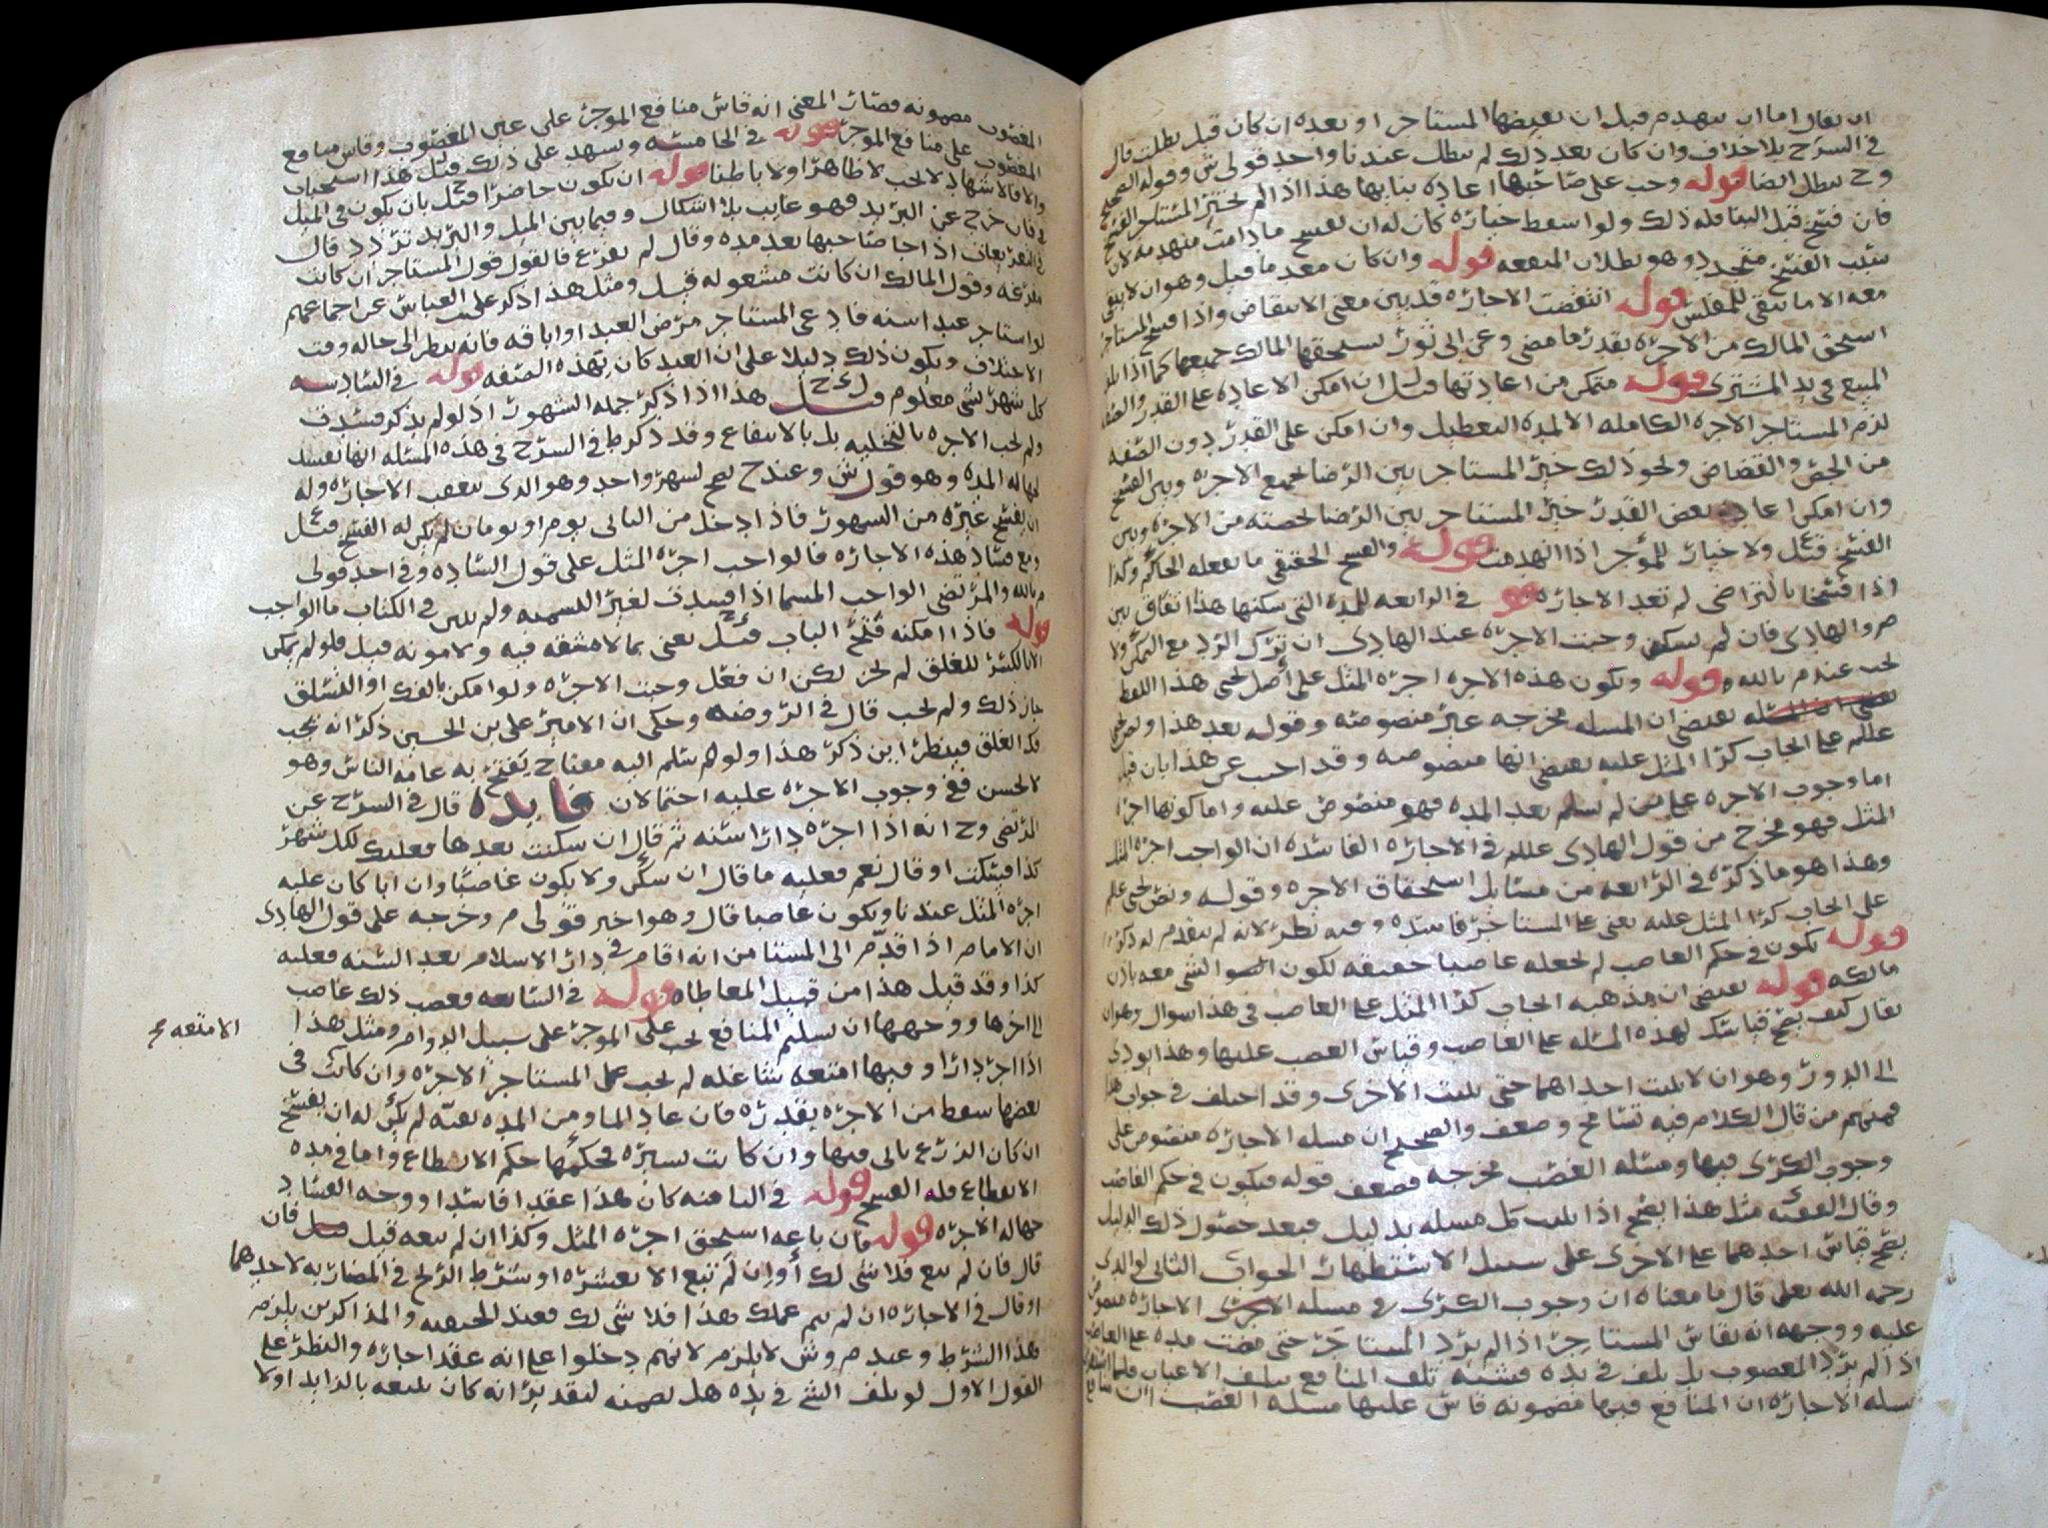 ان يقال اما ان ينهدم قبل ان يقبضها المستاجر او بعده ان كان قبل بطلت قال
في الشرح بلا خلاف وان كان بعد ذلك لم يبطل عندنا واحد قولي ش وقوله الصحيح
وح يبطل ايضا قوله وجب على صاحبها اعادة بنايها هذا اذا لم يختر المستاجر الفسخ
فان فسخ قبل البنا فله ذلك ولو اسقط خياره كان له ان يفسخ ما دامت منهدمه لان
سبب الفسخ متجدد وهو بطلان المنفعه قوله وان كان معدما قيل وهو ان لا يبقى
معه الا ما يبقى للمفلس قوله انتقضت الاجاره قد بين معنى الانتقاض واذا فسخ المستاجر
استحق المالك من الاجره بقدر ما مضى وعن ابي ثور يستحقها المالك جميعها كما اذا تلف
المبيع في يد المشتري قوله متمكن من اعادتها قيل ان امكن الاعاده على القدر والصفه
لزم المستاجر الاجره الكامله الا لمدة التعطيل وان امكن على القدر دون الصفه
من الجص والقضاض ونحو ذلك خير المستاجر بين الرضا بجميع الاجره وبين الفسخ
وان امكن اعادة بعض القدر خير المستاجر بين الرضا بحصته من الاجره وبين
الفسخ قيل ولا خيار للمؤجر اذا انهدمت قوله والفسخ الحقيقي ما يفعله الحاكم وكذا
اذا فسخا بالتراضي لم تعد الاجاره قوله في الرابعه للمدة التي سكنها هذا اتفاق بين
م والهادي فان لم يسكن وجبت الاجره عند الهادي ان ترك الرد مع التمكن ولا
تجب عند م بالله قوله وتكون هذه الاجره اجرة المثل على اصل يحيى هذا اللفظ
يقتضي ان المسله مخرجه غير منصوصه وقوله بعد هذا ونص يحيى
علم على ايجاب كرا المثل عليه يقتضي انها منصوصه وقد اجيب عن هذا بان قيل
اما وجوب الاجره على من لم يسلم بعد المده فهو منصوص عليه واما كونها اجرة
المثل فهو مخرج من قول الهادي علم في الاجاره الفاسده ان الواجب اجرة المثل
وهذا هو ما ذكره في الرابعه من مسايل استحقاق الاجره وقوله ونص يحيى علم
على ايجاب كرا المثل عليه يعني على المستاجر فاسده وفيه نظر لانه لم يتقدم له ذكر
قوله تكون في حكم الغاصب لم نجعله غاصبا حقيقه لكون الشي معه باذن
مالكه قوله يقتضي ان مذهبه ايجاب كرا المثل على الغاصب في هذا سوال وهو ان
يقال كيف يصح قياسك لهذه المسله على الغاصب وقياس الغصب عليها وهذا يودي
الى الدور وهو ان لا تثبت احداهما حتى تثبت الاخرى وقد اختلف في جواب هذا
فمنهم من قال الكلام فيه تسامح وضعف والصحيح ان مسلة الاجاره منصوص على
وجوب الكرى فيها ومسلة الغصب مخرجه فضعف قوله فيكون في حكم الغاصب
وقال الفقيه مثل هذا يصح اذا ثبت كل مسله بدليل فبعد حصول ذلك الدليل
يصح قياس احدهما على الاخرى على سبيل الاستظهار الجواب الثاني لوالدي
رحمه الله تعالى قال ما معناه ان وجوب الكرى في مسلة الاجاره منصوص
عليه ووجهه انه يقاس المستاجر اذا لم يرد المستاجر حتى مضت مده على الغاصب
اذا لم يرد المغصوب بل تلف في يده فشبه تلف المنافع بتلف الاعيان
مسلة الاجاره ان المنافع فيها مضمونه قاس عليها مسلة الغصب
المغصوب مضمونه فصار المعنى انه قاس منافع الموجر على عين المغصوب وقاس منافع
المغصوب على منافع الموجر قوله في الخامسه ويشهد على ذلك قيل هذا استحباب
والا فالاشهاد لا يجب لا ظاهرا ولا باطنا قوله ان يكون حاضرا قيل بان يكون في الميل
فان خرج عن البريد فهو غايب بلا اشكال وفيما بين الميل والبريد تردد قال
في التفريعات اذا جا صاحبها بعد مده وقال لم تفرغ فالقول قول المستاجر ان كانت
مفرغه وقول المالك ان كانت مشغوله قيل ومثل هذا ذكر علي بن العباس عن اجماعهم
لو استاجر عبدا سنه فادعى المستاجر مرض العبد او اباقه فانه ينظر الى حاله وقت
الاختلاف ويكون ذلك دليلا على ان العبد كان بهذه الصفه قوله في السادسه
كل شهر بشي معلوم قيل هذا اذا ذكر جملة الشهور اذ لو لم يذكر فسدت
ولم تجب الاجره بالتخليه بل بالانتفاع وقد ذكر ط في الشرح في هذه المسله انها تفسد
لجهالة المده وهو قول ش وعند ح يصح لشهر واحد وهو الذي يتعقب الاجاره وله
ان يفسخ غيره من الشهور فاذا دخل من الثاني يوم او يومان لم يكن له الفسخ قيل
ومع فساد هذه الاجاره فالواجب اجرة المثل على قول الساده وفي احد قولي
م بالله والمرتضى الواجب المسما اذا فسدت لغير التسميه ولم يبين في الكتاب ما الواجب
قوله فاذا امكنه فتح الباب قيل يعني بما لا مشقه فيه ولا مونه قيل فلو لم يمكن
الا بالكسر للغلق لم يجز لكن ان فعل وجبت الاجره ولو امكن بالفك او التسلق
جاز ذلك ولم يجب قال في الروضه وحكى ان الامير علي بن الحسين ذكر انه يجب
فك الغلق فينظر اين ذكر هذا ولو سلم اليه مفتاح يفتح به عامة الناس وهو
لا يحسن ففي وجوب الاجره عليه احتمالان فايده قال في الشرح عن
المرتضى وح انه اذا اجره دارا سنه ثم قال ان سكنت بعدها فعليك لكل شهر
كذا فسكت او قال نعم فعليه ما قال ان سكن ولا يكون غاصبا وان ابا كان عليه
اجرة المثل عندنا ويكون غاصبا قال وهو اخير قولي م وخرجه على قول الهادي
ان الامام اذا قدم الى المستامن انه اقام في دار الاسلام بعد السنه فعليه
كذا وقد قيل هذا من قبيل المعاطاه قوله في السابعه فغصب ذلك غاصب
الى اخرها ووجهها ان تسليم المنافع يجب على الموجر على سبيل الدوام ومثل هذا
الامتعه صح
اذا اجر دارا وفيها امتعه شاغله لم تجب على المستاجر الاجره وان كانت في
بعضها سقط من الاجره بقدره فان عاد الما ومن المده بقيه لم يكن له ان يفسخ
ان كان الزرع باقي فيها وان كانت يسيره فحكمها حكم الانقطاع واما في مدة
الانقطاع فله الفسخ قوله في الثامنه كان هذا عقدا فاسدا ووجه الفساد
جهالة الاجره قوله فان باعه استحق اجرة المثل وكذا ان لم يبعه قيل فان
قال فان لم تبع فلا شي لك او ان لم تبع الا بعشره او شرط الربح في المضاربه لاحدهما
او قال في الاجاره ان لم يتم عملك هذا فلا شي لك فعند الحنفيه والمذاكرين يلزم
هذا الشرط وعند م وش لا يلزم لانهم دخلوا على انه عقد اجاره والنظر على
القول الاول لو تلف الشي في يده هل يضمنه لتقدير انه كان يبيعه بالزايد او لا